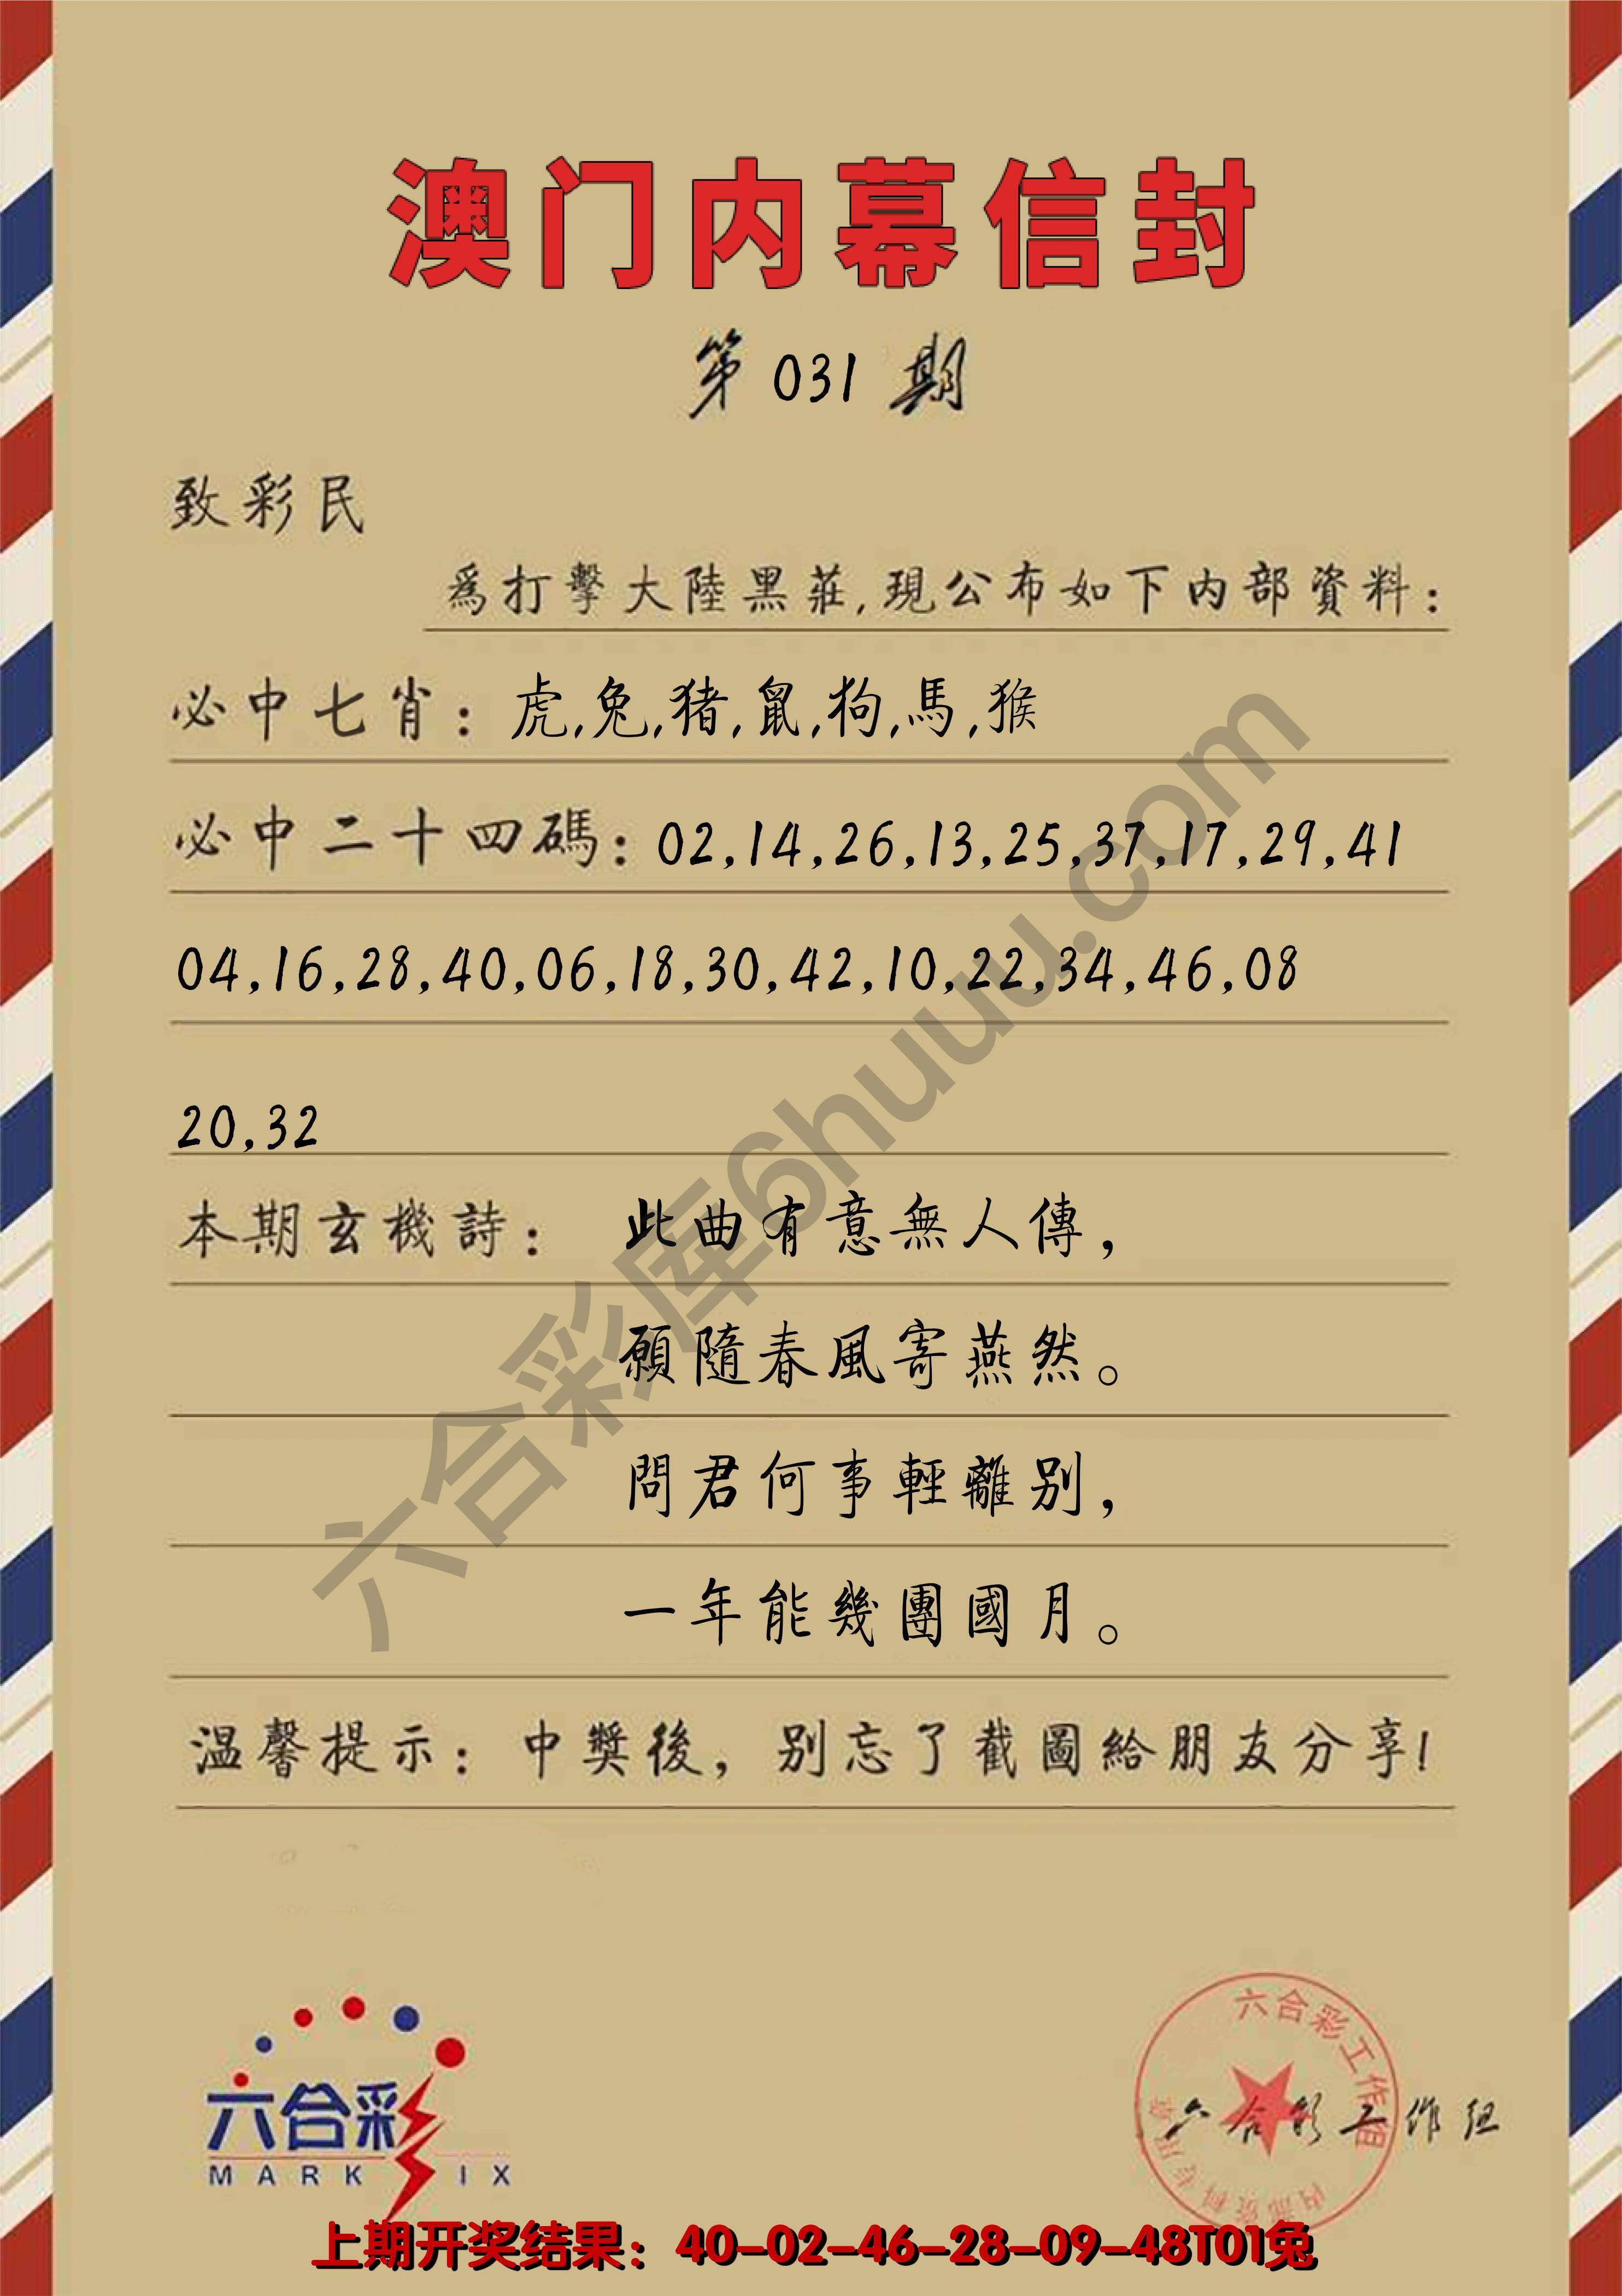 澳门内幕信封
第 031 期
致彩民
爲打擊大陸黑莊,現公布如下内部資料:
必中七肖: 虎,兔,猪,鼠,狗,馬,猴
必中二十四碼: 02,14,26,13,25,37,17,29,41
04,16,28,40,06,18,30,42,10,22,34,46,08
20,32
本期玄機詩: 此曲有意無人傳,
願隨春風寄燕然。
問君何事輕離别,
一年能幾團國月。
温馨提示: 中獎後, 别忘了截圖給朋友分享!
六合彩库6huuu.com
六合彩
MARK IX
六合彩工作组
内部资料专用章
六合彩工作组
上期开奖结果: 40-02-46-28-09-48T01兔